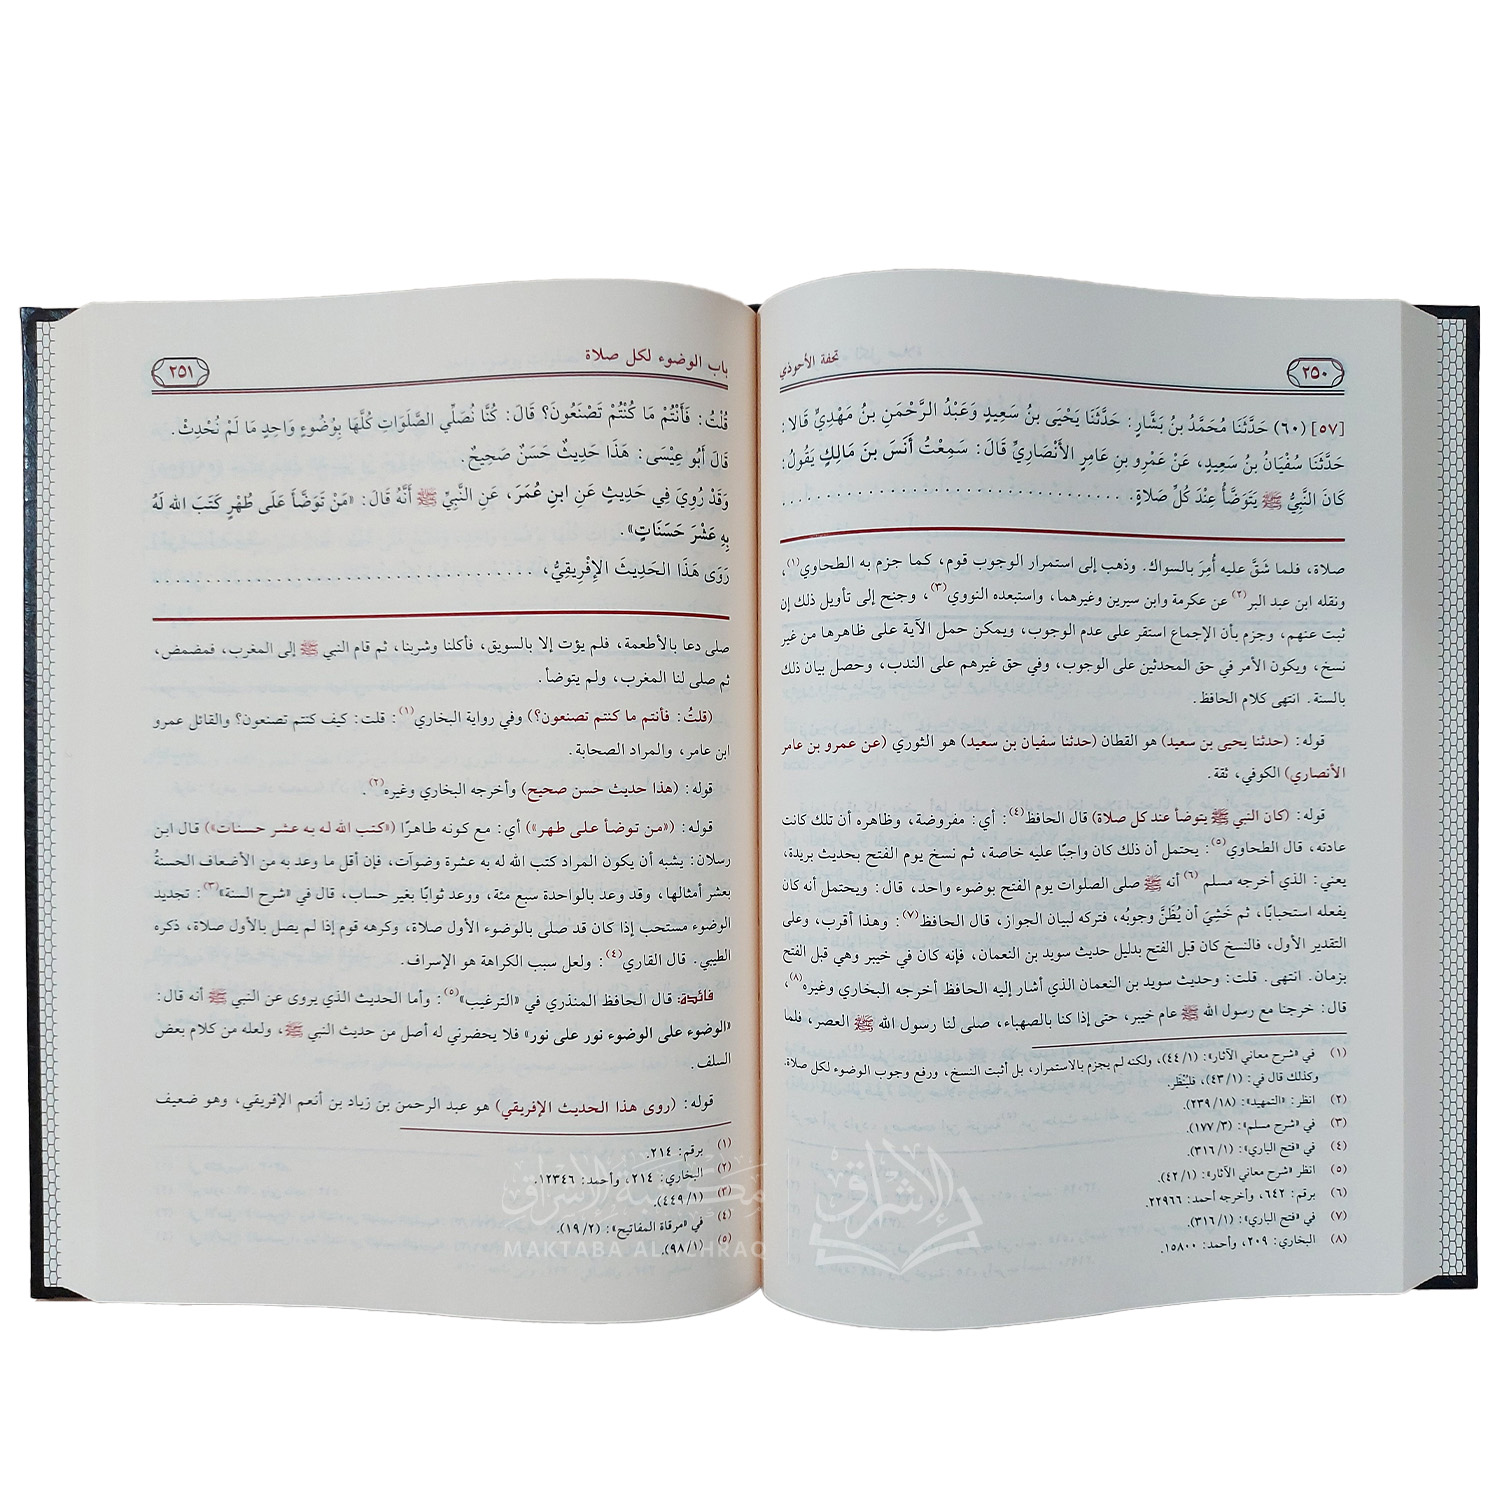 ٢٥٠
تحفة الأحوذي
[٥٧] (٦٠) حَدَّثَنَا مُحَمَّدُ بنُ بَشَّارٍ: حَدَّثَنَا يَحْيَى بنُ سَعِيدٍ وَعَبْدُ الرَّحْمَنِ بنُ مَهْدِيٍّ قَالَا:
حَدَّثَنَا سُفْيَانُ بنُ سَعِيدٍ، عَنْ عَمْرِو بنِ عَامِرٍ الأَنْصَارِيِّ قَالَ: سَمِعْتُ أَنَسَ بنَ مَالِكٍ يَقُولُ:
كَانَ النَّبِيُّ ﷺ يَتَوَضَّأُ عِنْدَ كُلِّ صَلاةٍ. . . . . . . . . . . . . . . . . . . . . . . . . . . . . . . . .
صلاة، فلما شَقَّ عليه أُمِرَ بالسواك. وذهب إلى استمرار الوجوب قوم، كما جزم به الطحاوي(١)،
ونقله ابن عبد البر(٢) عن عكرمة وابن سيرين وغيرهما، واستبعده النووي(٣)، وجنح إلى تأويل ذلك إن
ثبت عنهم، وجزم بأن الإجماع استقر على عدم الوجوب، ويمكن حمل الآية على ظاهرها من غير
نسخ، ويكون الأمر في حق المحدثين على الوجوب، وفي حق غيرهم على الندب، وحصل بيان ذلك
بالسنة. انتهى كلام الحافظ.
قوله: (حدثنا يحيى بن سعيد) هو القطان (حدثنا سفيان بن سعيد) هو الثوري (عن عمرو بن عامر
الأنصاري) الكوفي، ثقة.
قوله: (كان النبي ﷺ يتوضأ عند كل صلاة) قال الحافظ(٤): أي: مفروضة، وظاهره أن تلك كانت
عادته، قال الطحاوي(٥): يحتمل أن ذلك كان واجبًا عليه خاصة، ثم نسخ يوم الفتح بحديث بريدة،
يعني: الذي أخرجه مسلم(٦) أنه ﷺ صلى الصلوات يوم الفتح بوضوء واحد، قال: ويحتمل أنه كان
يفعله استحبابًا، ثم خَشِيَ أن يُظَنَّ وجوبُه، فتركه لبيان الجواز، قال الحافظ(٧): وهذا أقرب، وعلى
التقدير الأول، فالنسخ كان قبل الفتح بدليل حديث سويد بن النعمان، فإنه كان في خيبر وهي قبل الفتح
بزمان. انتهى. قلت: وحديث سويد بن النعمان الذي أشار إليه الحافظ أخرجه البخاري وغيره(٨)،
قال: خرجنا مع رسول الله ﷺ عام خيبر، حتى إذا كنا بالصهباء، صلى لنا رسول الله ﷺ العصر، فلما
(١) في «شرح معاني الآثار»: (١/ ٤٤)، ولكنه لم يجزم بالاستمرار، بل أثبت النسخ، ورفع وجوب الوضوء لكل صلاة،
وكذلك قال في: (١/ ٤٣)، فليُنْظَر.
(٢) انظر: «التمهيد»: (١٨/ ٢٣٩).
(٣) في «شرح مسلم»: (٣/ ١٧٧).
(٤) في «فتح الباري»: (١/ ٣١٦).
(٥) انظر «شرح معاني الآثار»: (١/ ٤٢).
(٦) برقم: ٦٤٢، وأخرجه أحمد: ٢٢٩٦٦.
(٧) في «فتح الباري»: (١/ ٣١٦).
(٨) البخاري: ٢٠٩، وأحمد: ١٥٨٠٠.
باب الوضوء لكل صلاة
٢٥١
قُلْتُ: فَأَنْتُمْ مَا كُنْتُمْ تَصْنَعُونَ؟ قَالَ: كُنَّا نُصَلِّي الصَّلَوَاتِ كُلَّهَا بِوُضُوءٍ وَاحِدٍ مَا لَمْ نُحْدِثْ.
قَالَ أَبُو عِيْسَى: هَذَا حَدِيثٌ حَسَنٌ صَحِيحٌ.
وَقَدْ رُوِيَ فِي حَدِيثٍ عَنِ ابنِ عُمَرَ، عَنِ النَّبِيِّ ﷺ أَنَّهُ قَالَ: «مَنْ تَوَضَّأَ عَلَى طُهْرٍ كَتَبَ الله لَهُ
بِهِ عَشْرَ حَسَنَاتٍ».
رَوَى هَذَا الحَدِيثَ الإِفْرِيقِيُّ، . . . . . . . . . . . . . . . . . . . . . . . . . . . . . . . . . . . .
صلى دعا بالأطعمة، فلم يؤت إلا بالسويق، فأكلنا وشربنا، ثم قام النبي ﷺ إلى المغرب، فمضمض،
ثم صلى لنا المغرب، ولم يتوضأ.
(قلتُ: فأنتم ما كنتم تصنعون؟) وفي رواية البخاري(١): قلت: كيف كنتم تصنعون؟ والقائل عمرو
ابن عامر، والمراد الصحابة.
قوله: (هذا حديث حسن صحيح) وأخرجه البخاري وغيره(٢).
قوله: («من توضأ على طهر») أي: مع كونه طاهرًا («كتب الله له به عشر حسنات») قال ابن
رسلان: يشبه أن يكون المراد كتب الله له به عشرة وضوآت، فإن أقل ما وعد به من الأضعاف الحسنةُ
بعشر أمثالها، وقد وعد بالواحدة سبع مئة، ووعد ثوابًا بغير حساب، قال في «شرح السنة»(٣): تجديد
الوضوء مستحب إذا كان قد صلى بالوضوء الأول صلاة، وكرهه قوم إذا لم يصل بالأول صلاة، ذكره
الطيبي. قال القاري(٤): ولعل سبب الكراهة هو الإسراف.
فائدة: قال الحافظ المنذري في «الترغيب»(٥): وأما الحديث الذي يروى عن النبي ﷺ أنه قال:
«الوضوء على الوضوء نور على نور» فلا يحضرني له أصل من حديث النبي ﷺ، ولعله من كلام بعض
السلف.
قوله: (روى هذا الحديث الإفريقي) هو عبد الرحمن بن زياد بن أنعم الإفريقي، وهو ضعيف
(١) برقم: ٢١٤.
(٢) البخاري: ٢١٤، وأحمد: ١٢٣٤٦.
(٣) (١/ ٤٤٩).
(٤) في «مرقاة المفاتيح»: (٢/ ١٩).
(٥) (١/ ٩٨).
مكتبة الإشراق
MAKTABA AL ISHRAQ
الإشراق